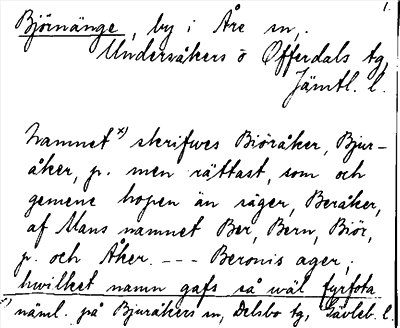 1.
Björnänge, by i Åre sn,
Undersåkers o Offerdals tg,
Jämtl. l.
Namnet x) skrifwes Biöråker, Bjur-
åker, p. men rättast, som och
gemene hopen än säger, Beråker,
af Mans namnet Ber, Bern, Biör,
p. och Åker. --- Beronis ager;
hwilket namn gafs så wäl fyrfota
x) näml. på Bjuråkers sn, Delsbo tg, Gävleb. l.